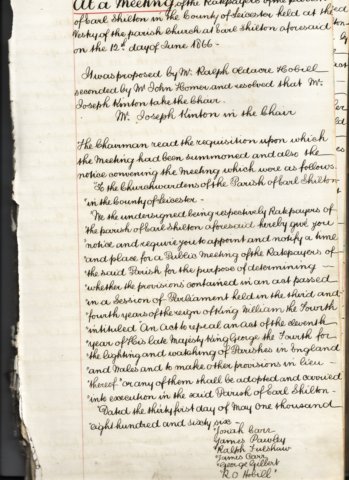 At a Meeting of the Ratepayers of the parish
of Earl Shilton in the County of Leicester held at the
Vestry of the parish Church at Earl Shilton aforesaid
on the 12th day of June 1866.
It was proposed by Mr. Ralph Hobill
seconded by Mr John Homer and resolved that Mr.
Joseph Kinton take the Chair.
Mr. Joseph Kinton in the Chair
The Chairman read the requisition upon which
the Meeting had been summoned and also the
notice convening the Meeting which were as follows.
"To the Churchwardens of the Parish of Earl Shilton
"in the County of Leicester.
"We the undersigned being respectively Ratepayers of
"the parish of Earl Shilton aforesaid hereby give you
"notice and require you to appoint and notify a time
"and place for a Public Meeting of the Ratepayers of
"the said Parish for the purpose of determining
"whether the provisions contained in an act passed
"in a Session of Parliament held in the third and
"fourth years of the reign of King William the Fourth
"intituled An Act to repeal an Act of the eleventh
"year of His late Majesty King George the Fourth for
"the lighting and watching of Parishes in England
"and Wales and to make other provisions in lieu
"thereof" or any of them shall be adopted and carried
"into execution in the said Parish of Earl Shilton.
"Dated the thirty first day of May One thousand
"eight hundred and sixty six.
"Jonah Carr
"James Pawley
"Ralph Fulshaw
"James Carr
"George Gilbert
"R. O. Hobill"